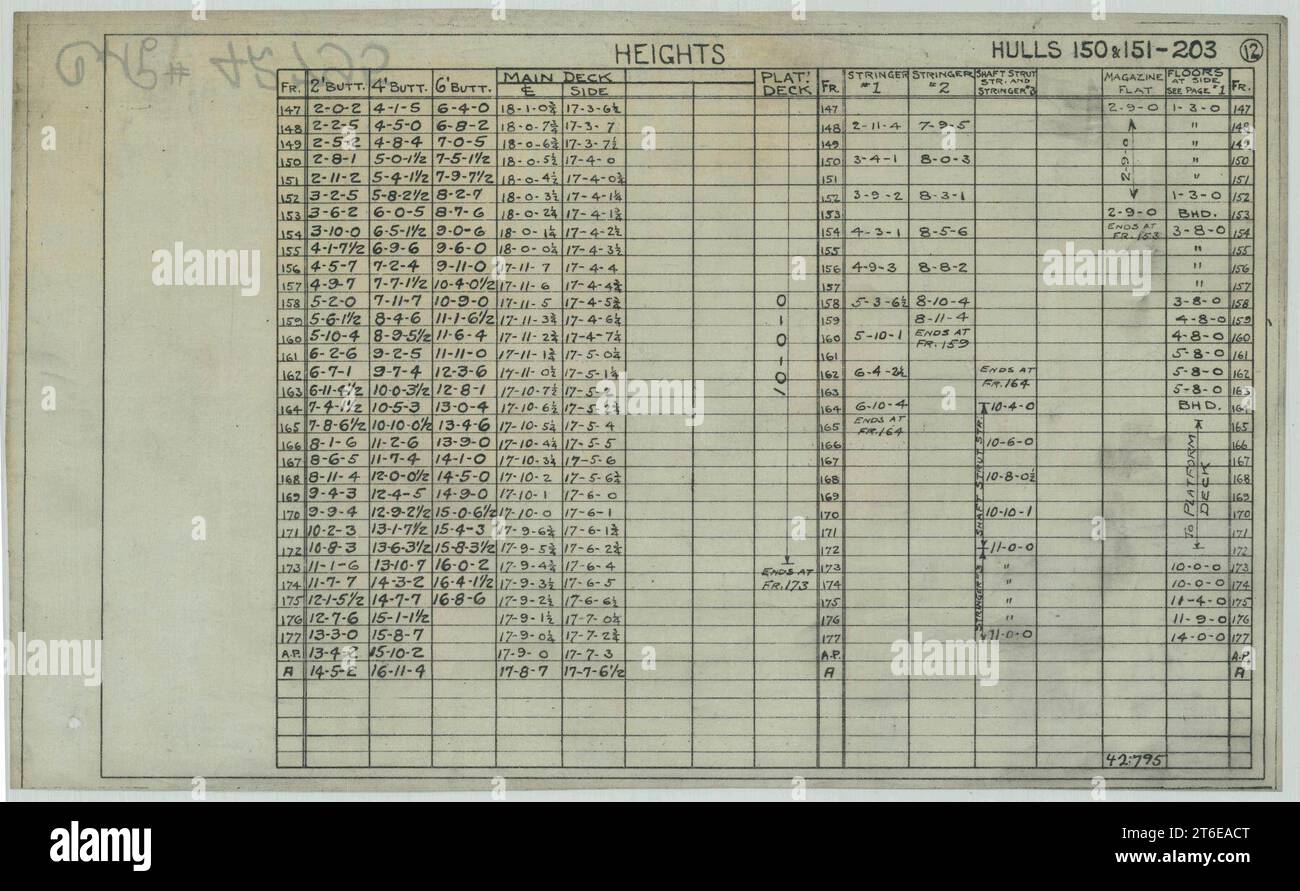 HEIGHTS HULLS 150 & 151-203 12
FR. 2' BUTT. 4' BUTT. 6' BUTT. MAIN DECK ℄ SIDE PLAT. DECK FR. STRINGER #1 STRINGER #2 SHAFT STRUT STR. AND STRINGER #3 MAGAZINE FLAT FLOORS AT SIDE SEE PAGE #1 FR.
147 2-0-2 4-1-5 6-4-0 18-1-0¾ 17-3-6½ 147 2-9-0 1-3-0 147
148 2-2-5 4-5-0 6-8-2 18-0-7¾ 17-3-7 148 2-11-4 7-9-5 " 148
149 2-5-2 4-8-4 7-0-5 18-0-6¾ 17-3-7½ 149 2-9-0 " 149
150 2-8-1 5-0-1½ 7-5-1½ 18-0-5½ 17-4-0 150 3-4-1 8-0-3 " 150
151 2-11-2 5-4-1½ 7-9-7½ 18-0-4½ 17-4-0¾ 151 " 151
152 3-2-5 5-8-2½ 8-2-7 18-0-3½ 17-4-1¼ 152 3-9-2 8-3-1 1-3-0 152
153 3-6-2 6-0-5 8-7-6 18-0-2¼ 17-4-1¾ 153 2-9-0 BHD. 153
154 3-10-0 6-5-1½ 9-0-6 18-0-1¼ 17-4-2½ 154 4-3-1 8-5-6 ENDS AT FR. 153 3-8-0 154
155 4-1-7½ 6-9-6 9-6-0 18-0-0¼ 17-4-3½ 155 " 155
156 4-5-7 7-2-4 9-11-0 17-11-7 17-4-4 156 4-9-3 8-8-2 " 156
157 4-9-7 7-7-1½ 10-4-0½ 17-11-6 17-4-4¾ 157 " 157
158 5-2-0 7-11-7 10-9-0 17-11-5 17-4-5¾ 10-0-1-0 158 5-3-6½ 8-10-4 3-8-0 158
159 5-6-1½ 8-4-6 11-1-6½ 17-11-3¾ 17-4-6¼ 159 8-11-4 4-8-0 159
160 5-10-4 8-9-5½ 11-6-4 17-11-2¾ 17-4-7¼ 160 5-10-1 ENDS AT FR. 159 4-8-0 160
161 6-2-6 9-2-5 11-11-0 17-11-1¾ 17-5-0¼ 161 5-8-0 161
162 6-7-1 9-7-4 12-3-6 17-11-0½ 17-5-1¼ 162 6-4-2½ ENDS AT FR. 164 5-8-0 162
163 6-11-4½ 10-0-3½ 12-8-1 17-10-7½ 17-5-2 163 5-8-0 163
164 7-4-1½ 10-5-3 13-0-4 17-10-6½ 17-5-2¾ 164 6-10-4 10-4-0 BHD. 164
165 7-8-6½ 10-10-0½ 13-4-6 17-10-5¼ 17-5-4 165 ENDS AT FR. 164 SHAFT STRUT STR. TO PLATFORM DECK 165
166 8-1-6 11-2-6 13-9-0 17-10-4¼ 17-5-5 166 10-6-0 166
167 8-6-5 11-7-4 14-1-0 17-10-3¼ 17-5-6 167 167
168 8-11-4 12-0-0½ 14-5-0 17-10-2 17-5-6¾ 168 10-8-0½ 168
169 9-4-3 12-4-5 14-9-0 17-10-1 17-6-0 169 169
170 9-9-4 12-9-2½ 15-0-6½ 17-10-0 17-6-1 170 10-10-1 170
171 10-2-3 13-1-7½ 15-4-3 17-9-6¾ 17-6-1¾ 171 171
172 10-8-3 13-6-3½ 15-8-3½ 17-9-5¾ 17-6-2¾ 172 11-0-0 172
173 11-1-6 13-10-7 16-0-2 17-9-4¾ 17-6-4 ENDS AT FR. 173 173 STRINGER #3 " 10-0-0 173
174 11-7-7 14-3-2 16-4-1½ 17-9-3½ 17-6-5 174 " 10-0-0 174
175 12-1-5½ 14-7-7 16-8-6 17-9-2½ 17-6-6½ 175 " 11-4-0 175
176 12-7-6 15-1-1½ 17-9-1½ 17-7-0¼ 176 " 11-9-0 176
177 13-3-0 15-8-7 17-9-0¼ 17-7-2¾ 177 11-0-0 14-0-0 177
A.P. 13-4-2 15-10-2 17-9-0 17-7-3 A.P. A.P.
A 14-5-2 16-11-4 17-8-7 17-7-6½ A A
42:795
alamy
alamy
alamy
Image ID: 2T6EACT
www.alamy.com